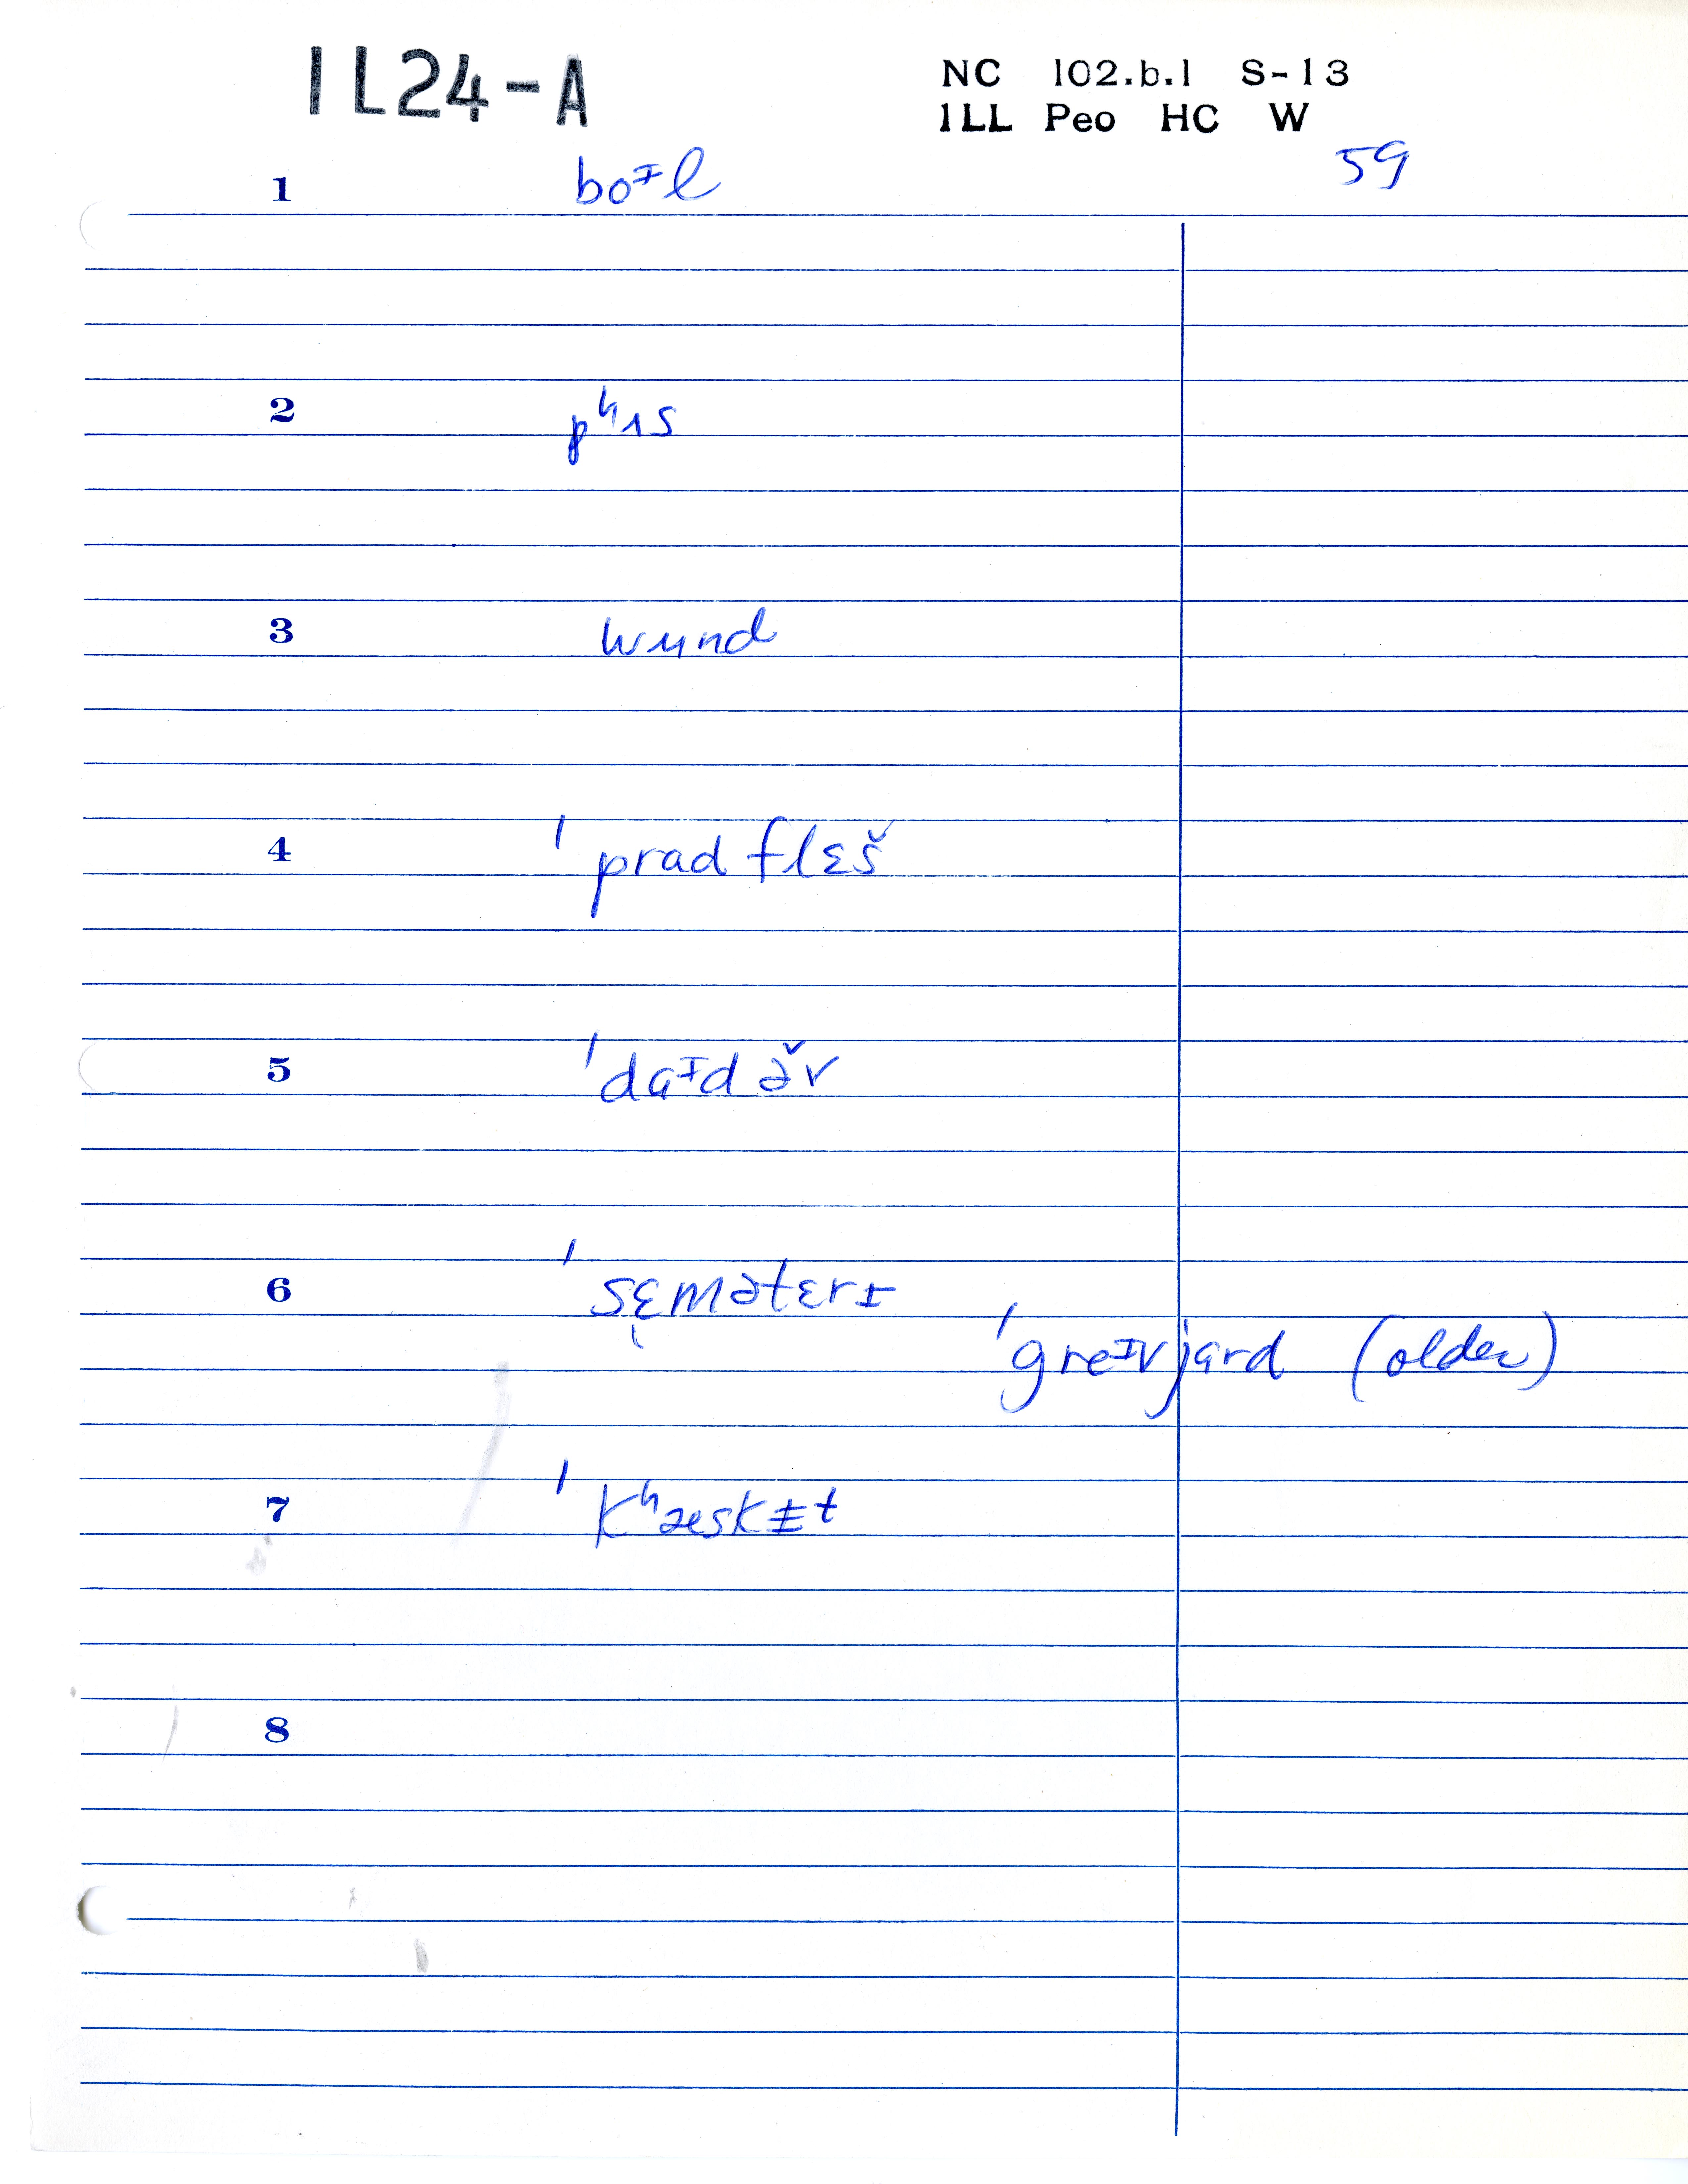 IL24-A
NC 102.b.1 S-13
ILL Peo HC W
59
1 boᶦl
2 pʰʌs
3 wund
4 ˈpradflɛš
5 ˈdaᶦdə̌r
6 ˈsɛ̜mətɛrɪ
ˈgreᶦvjɑrd (older)
7 ˈkʰæskɪ̵t
8